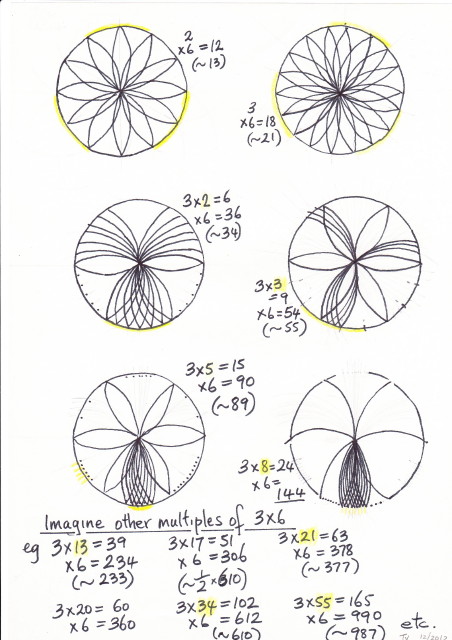 2
x6=12
(~13)
3
x6=18
(~21)
3x2=6
x6=36
(~34)
3x3
=9
x6=54
(~55)
3x5=15
x6=90
(~89)
3x8=24
x6=
144
Imagine other multiples of 3x6
eg 3x13=39
x6=234
(~233)
3x17=51
x6=306
(~½x610)
3x21=63
x6=378
(~377)
3x20=60
x6=360
3x34=102
x6=612
(~610)
3x55=165
x6=990
(~987)
etc.